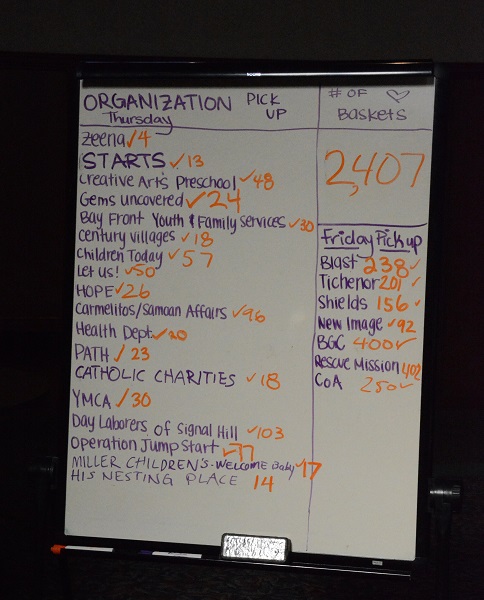 ORGANIZATION PICK UP
Thursday
Zeena ✓4
STARTS ✓13
Creative Arts Preschool ✓48
Gems Uncovered ✓24
Bay Front Youth & Family Services ✓30
Century Villages ✓18
Children Today ✓57
Let Us! ✓50
HOPE ✓26
Carmelitos/Samoan Affairs ✓96
Health Dept. ✓20
PATH ✓23
CATHOLIC CHARITIES ✓18
YMCA ✓30
Day Laborers of Signal Hill ✓103
Operation Jump Start ✓77
MILLER CHILDREN'S - Welcome Baby ✓17
HIS NESTING PLACE 14
# OF ♡
Baskets
2,407
Friday Pick up
Blast 238 ✓
Tichenor 201 ✓
Shields 156 ✓
New Image ✓92
BGC 400 ✓
Rescue Mission 402
CoA 250 ✓